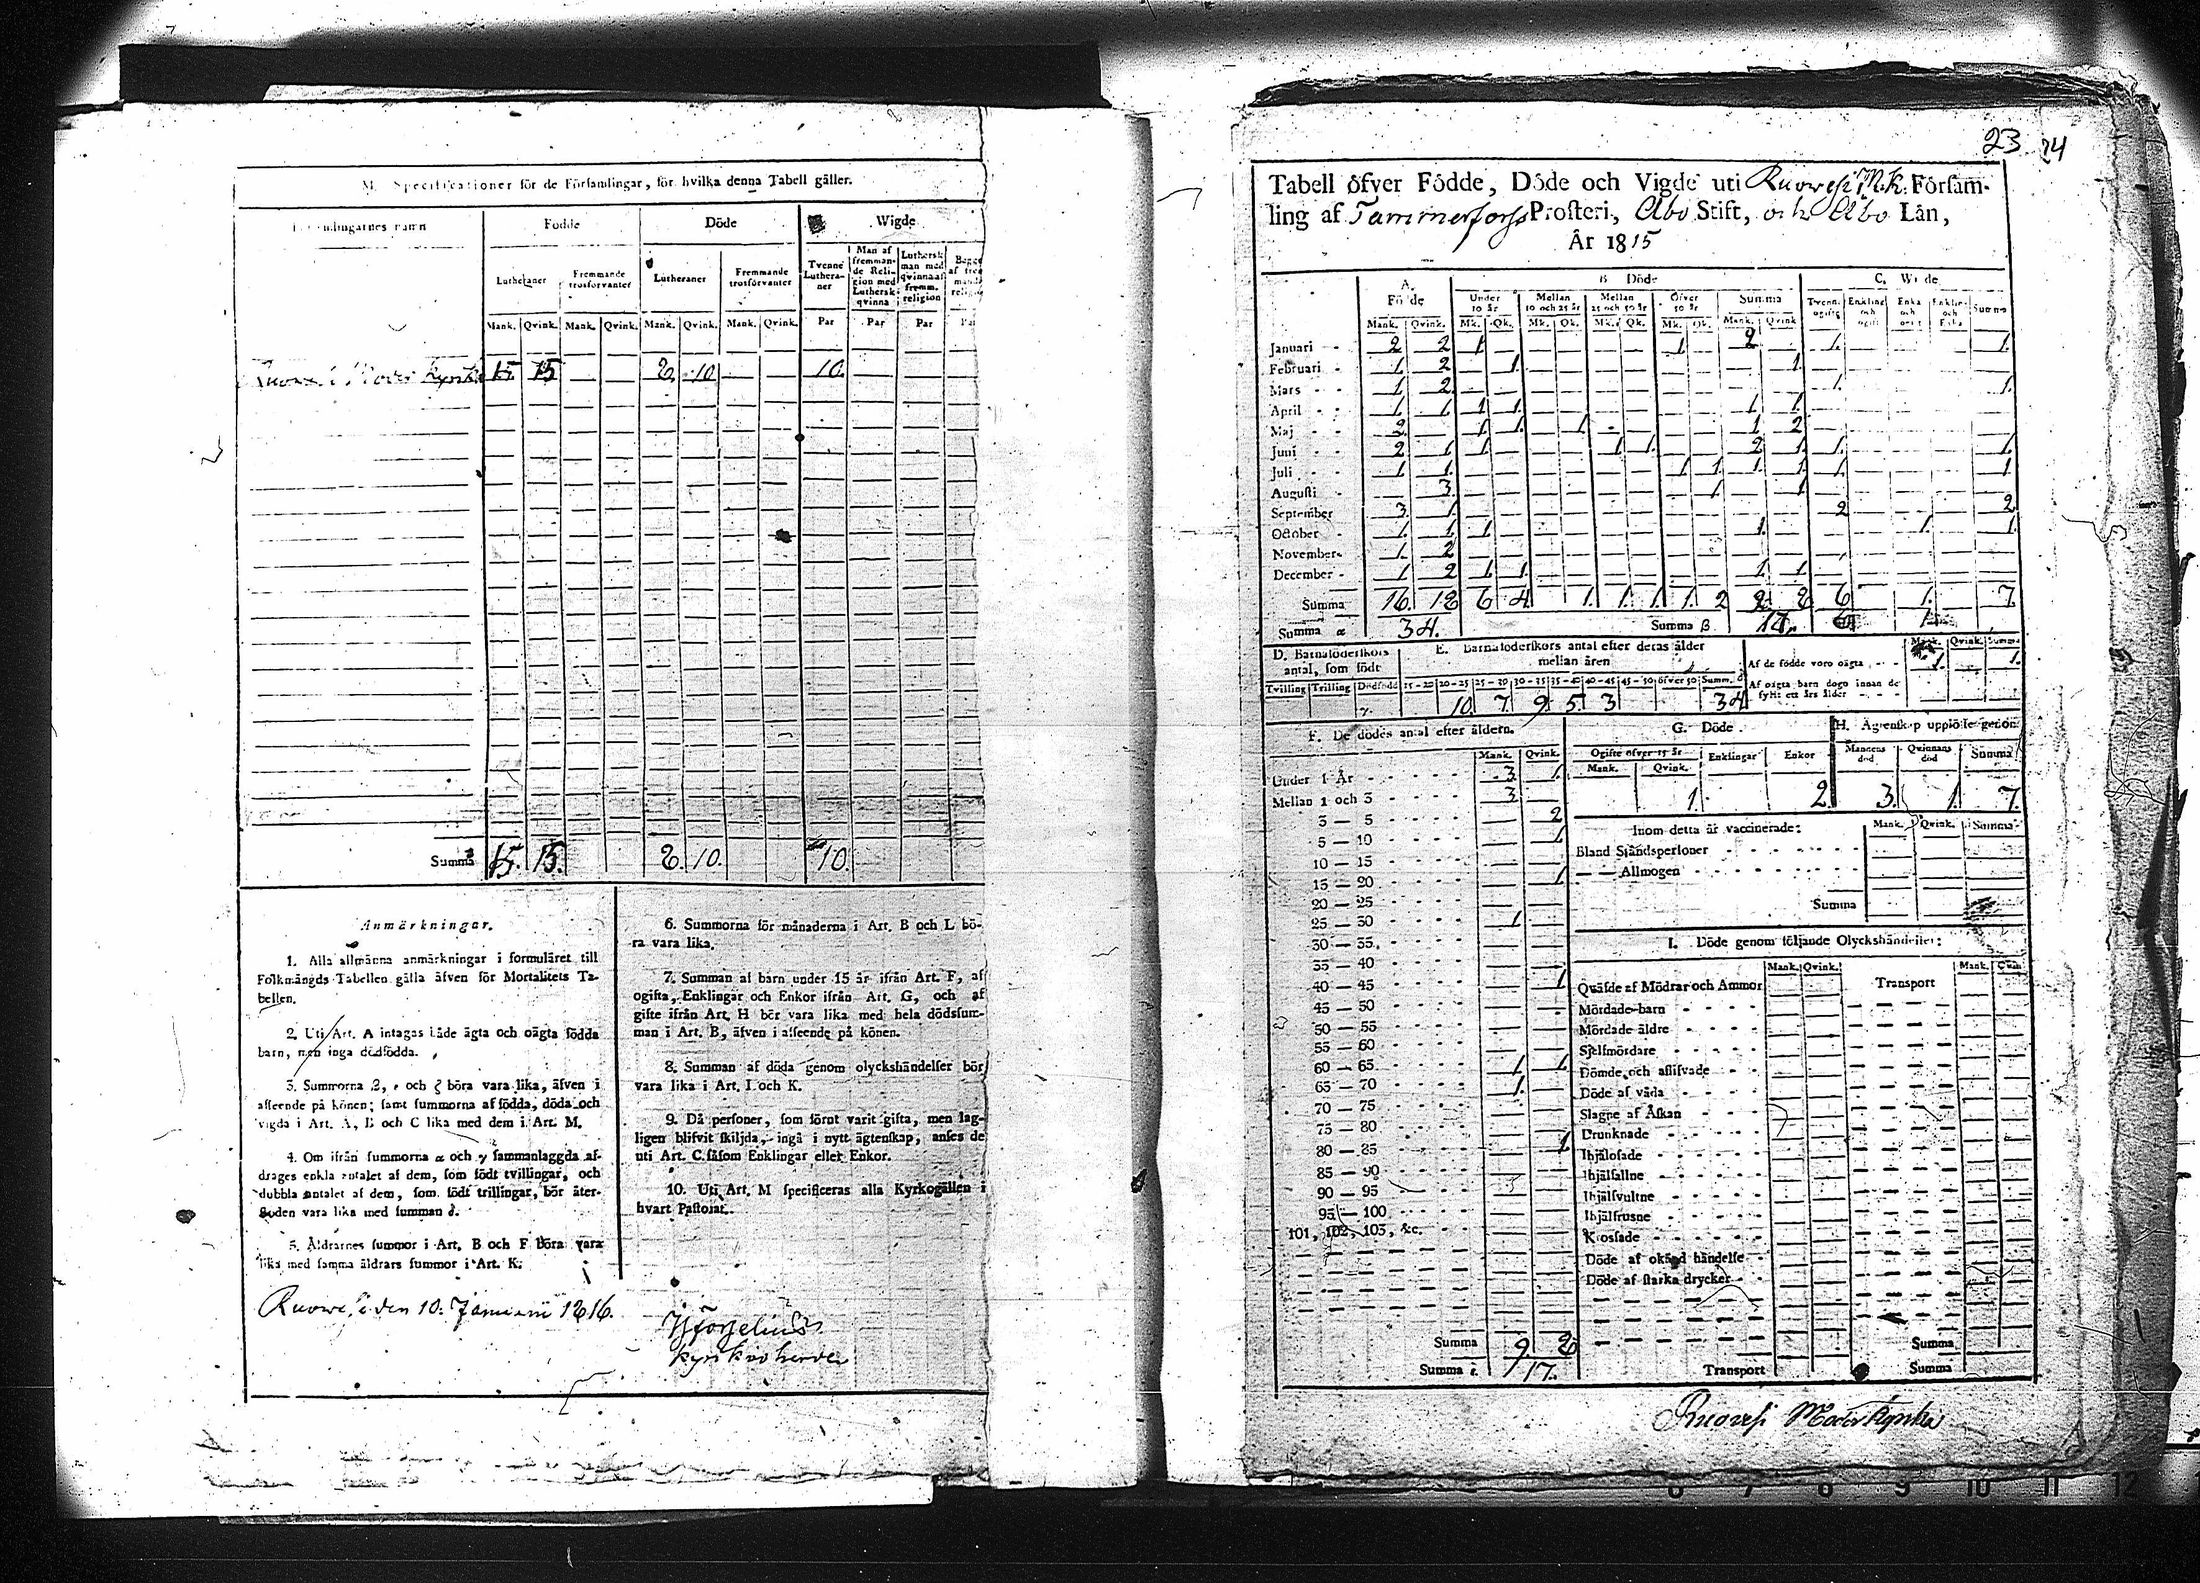 M. Specificationer för de Församlingar, för hvilka denna Tabell gäller.
Församlingarnes namn
Födde Döde Wigde
Lutheraner Fremmande trosförvanter Lutheraner Fremmande trosförvanter Tvenne Lutheraner Man af fremmande Religion med Luthersk qvinna Luthersk man med qvinna af fremm. religion
Mank. Qvink. Mank. Qvink. Mank. Qvink. Mank. Qvink. Par Par Par Par
Ruovesi Moder Kyrka 15 15 — — 8 10 — — 10.
Summa 15. 15. 8 10. 10.
Anmärkningar.
1. Alla allmänna anmärkningar i formuläret till
Folkmängds-Tabellen gälla äfven för Mortalitets Ta-
bellen.
2. Uti Art. A intagas både ägta och oägta födda
barn, men inga dödfödda.
3. Summorna β, ε och ζ böra vara lika, äfven i
afseende på könen; samt summorna af födda, döda och
vigda i Art. A, B och C lika med dem i Art. M.
4. Om ifrån summorna α och γ sammanlaggda af-
drages enkla antalet af dem, som födt tvillingar, och
dubbla antalet af dem, som födt trillingar, bör åter-
stoden vara lika med summan δ.
5. Åldrarnes summor i Art. B och F böra vara
lika med samma åldrars summor i Art. K.
6. Summorna för månaderna i Art. B och L bö-
ra vara lika.
7. Summan af barn under 15 år ifrån Art. F, af
ogifta, Enklingar och Enkor ifrån Art. G, och af
gifte ifrån Art. H bör vara lika med hela dödssum-
man i Art. B, äfven i afseende på könen.
8. Summan af döda genom olyckshändelser bör
vara lika i Art. I och K.
9. Då personer, som förut varit gifta, men lag-
ligen blifvit skiljda, ingå i nytt ägtenskap, anses de
uti Art. C såsom Enklingar eller Enkor.
10. Uti Art. M specificeras alla Kyrkogällen i
hvart Pastorat.
Ruovesi den 10: Januarii 1816.
Kyrkoherde
23 24
Tabell öfver Födde, Döde och Vigde uti Ruovesi M.K. Försam-
ling af Tammerforss Prosteri, Åbo Stift, och Åbo Län,
År 1815
A. Födde B. Döde C. Wigde
Under 10 år Mellan 10 och 25 år Mellan 25 och 50 år Öfver 50 år Summa Tvenne ogifte Enkling och ogift Enka och ogift Enkling och Enka Summa
Mank. Qvink. Mk. Qk. Mk. Qk. Mk. Qk. Mk. Qk. Mank. Qvink
Januari 2 2 1 1 2 1. 1.
Februari 1. 2 1. 1.
Mars 1 2 1. 1.
April 1 1 1 1. 1 1.
Maj 2 1 1. 1 1 2
Juni 2 1 1 1 1. 2 1. 1. 1
Juli 1 1. 1 1 1 1 1. 1
Augusti 3. 1 1
September 3 1. 2 2
October 1. 1 1 1. 1. 1
November 1. 2
December 1 2 1 1. 1 1
Summa 16. 18 6 4. 1. 1. 1. 1. 2 9 8 6 1. 7.
Summa α 34. Summa β 17. 1
D. Barnaföderskors antal, som födt
Tvilling Trilling Dödfödd
E. Barnaföderskors antal efter deras ålder mellan åren
15-20 20-25 25-30 30-35 35-40 40-45 45-50 öfver 50 Summ. δ
γ. 10. 7. 9 5 3 34
Mank. Qvink. Summa
Af de födde voro oägta 1. 1.
Af oägta barn dogo innan de
fyllt ett års ålder
F. De dödes antal efter åldern.
Mank. Qvink.
Under 1 År 3 1.
Mellan 1 och 3 3
3 — 5 2
5 — 10 1
10 — 15
15 — 20 1
20 — 25
25 — 30 1
30 — 35
35 — 40
40 — 45 1
45 — 50
50 — 55
55 — 60
60 — 65 1 1
65 — 70 1.
70 — 75
75 — 80
80 — 85 1
85 — 90
90 — 95
95 — 100
101, 102, 103, &c.
Summa 9. 8
Summa ε. 17.
G. Döde
Ogifte öfver 15 år Enklingar Enkor
Mank. Qvink.
1. 2
H. Ägtenskap upplöste genom
Mannens död Qvinnans död Summa
3. 1. 7.
Inom detta år vaccinerade: Mank. Qvink. Summa
Bland Ståndspersoner
— — Allmogen
Summa
I. Döde genom följande Olyckshändelser:
Mank. Qvink. Transport Mank. Qvink.
Quäfde af Mödrar och Ammor
Mördade barn
Mördade äldre
Sjelfmördare
Dömde och aflifvade
Döde af våda
Slagne af Åskan
Drunknade
Ihjälofade
Ihjälfallne
Ihjälsvultne
Ihjälfrusne
Krossade
Döde af okänd händelse
Döde af starka drycker
Summa
Transport Summa
Ruovesi Moderkyrka
6 7 8 9 10 11 12